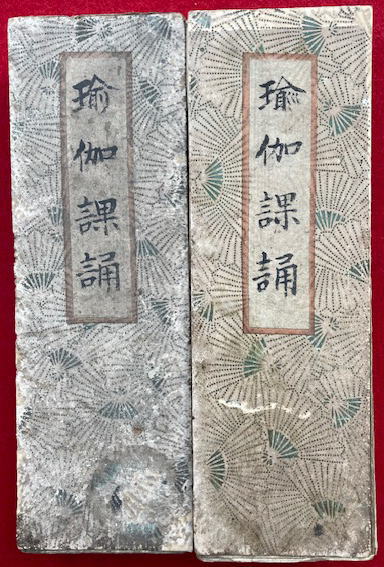 瑜伽課誦
瑜伽課誦